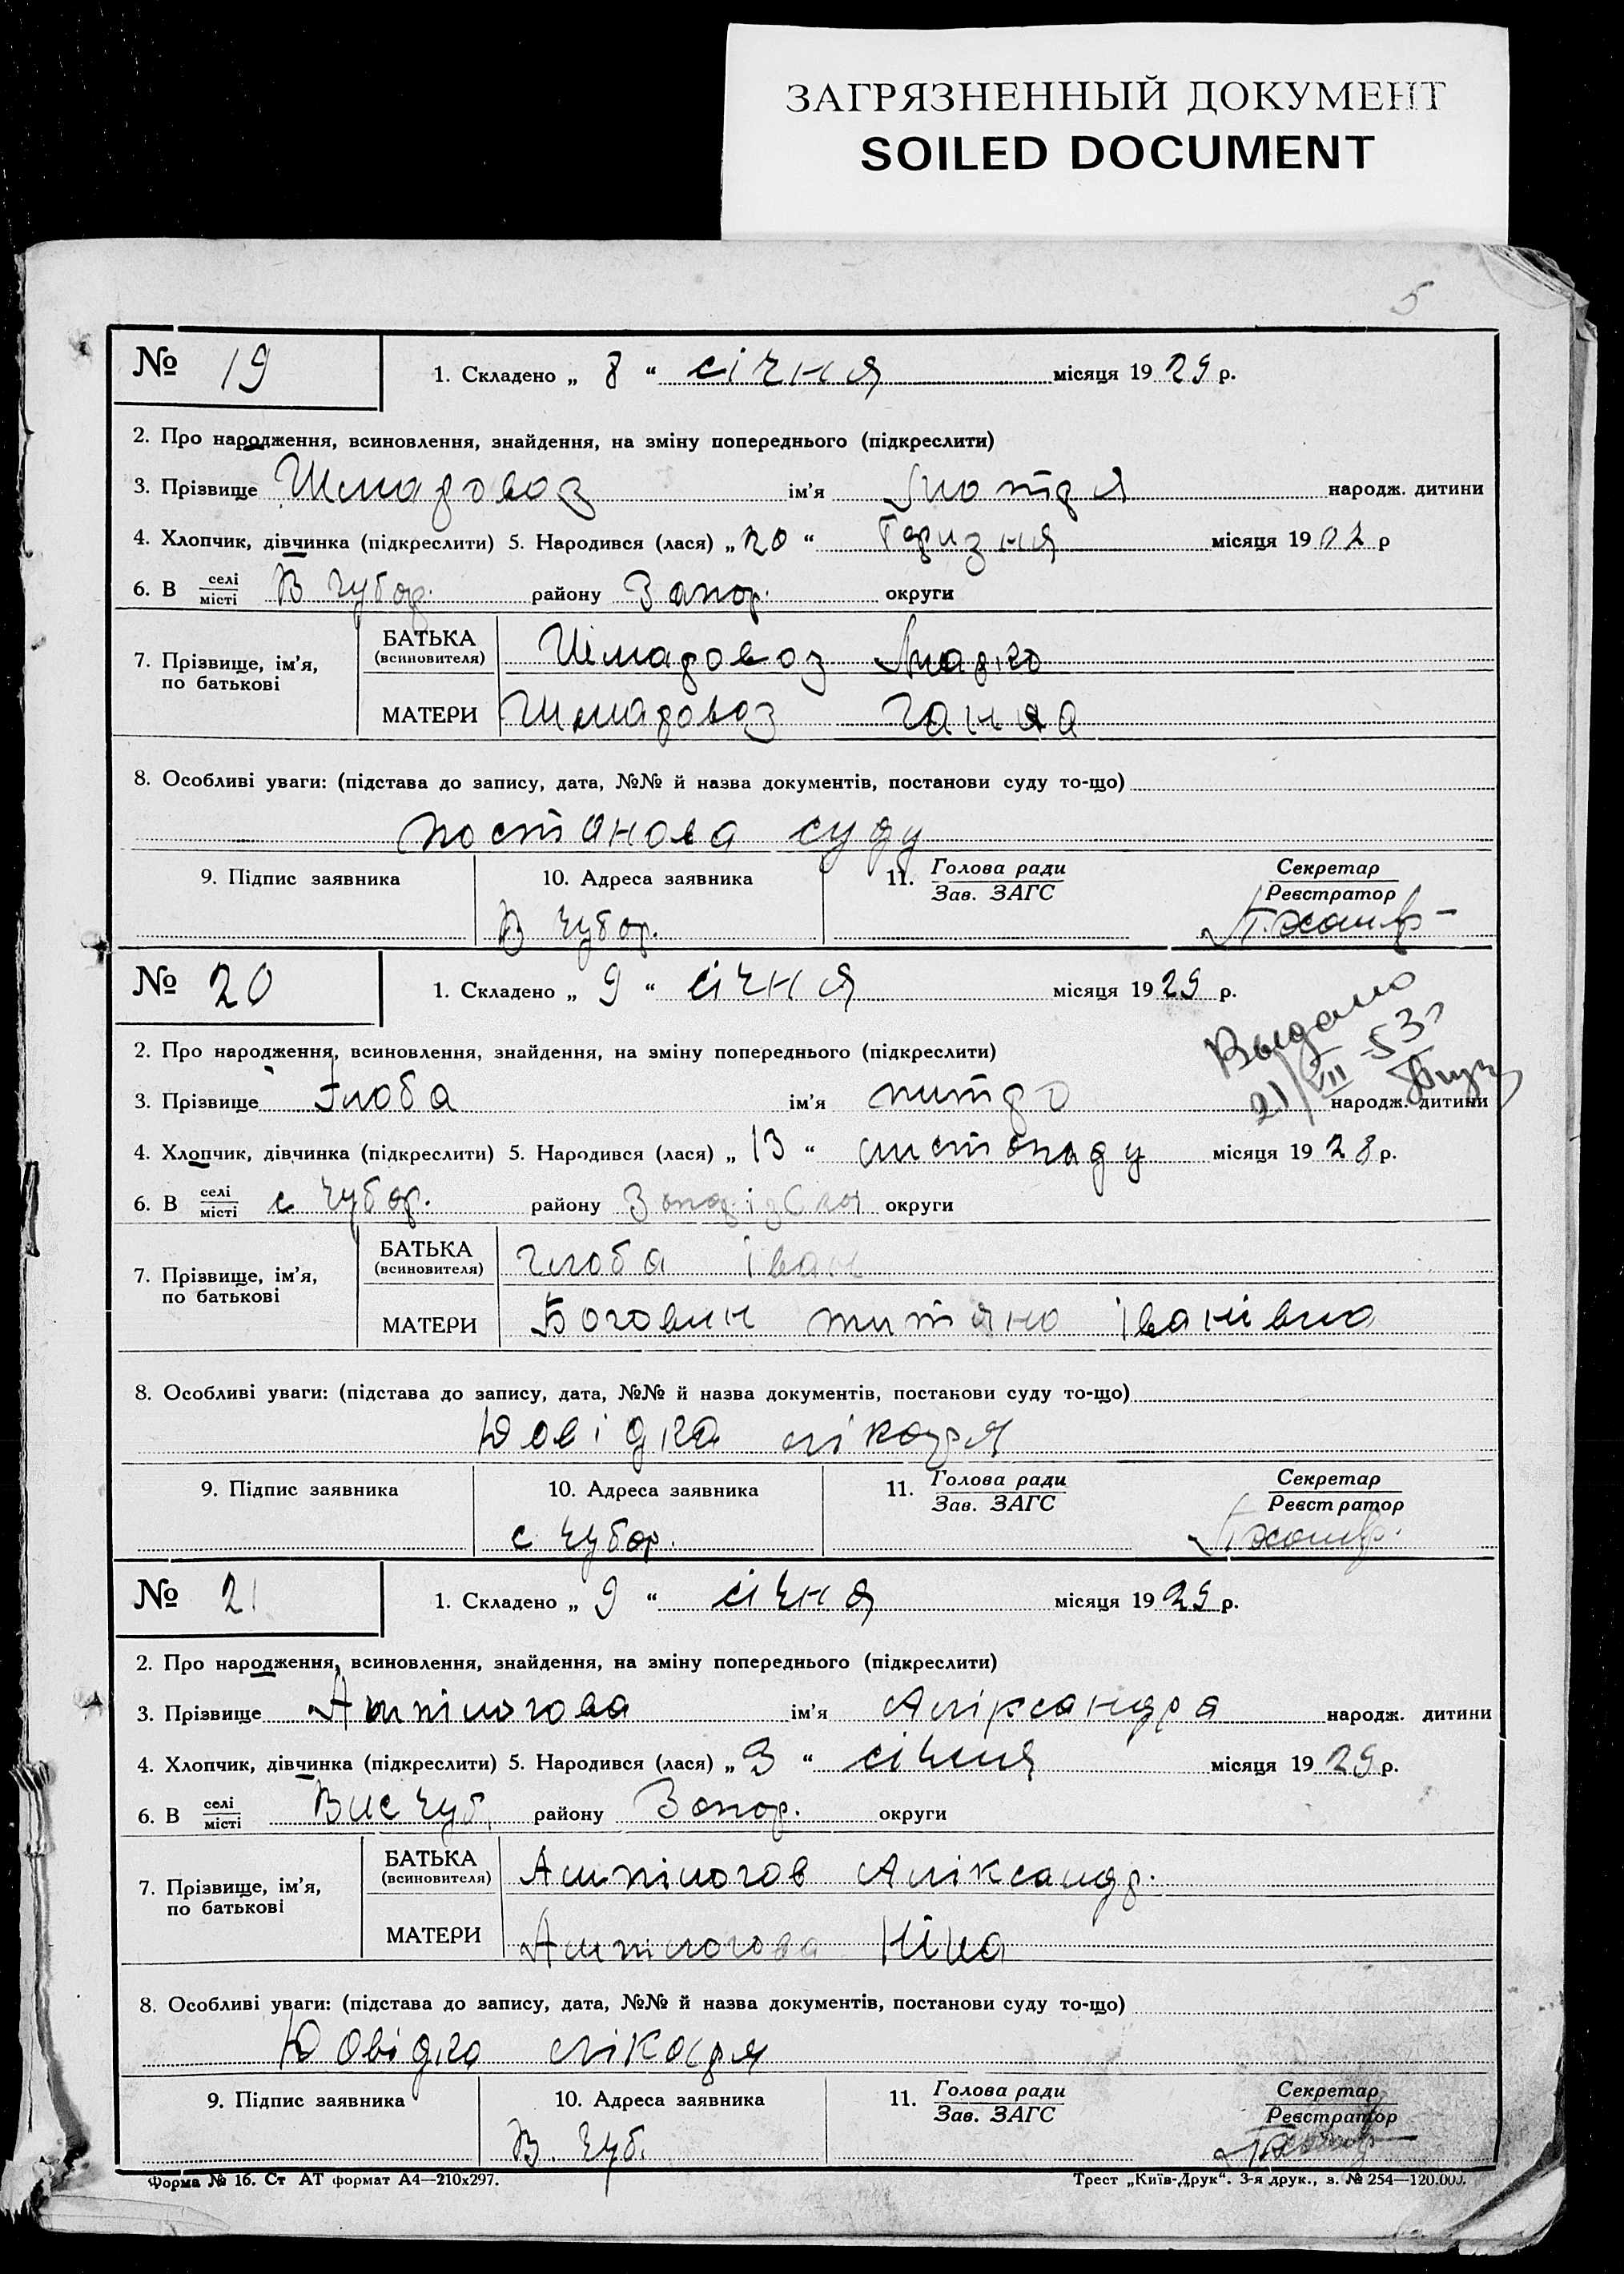 ЗАГРЯЗНЕННЫЙ ДОКУМЕНТ
SOILED DOCUMENT
5
№ 19
1. Складено „ 8 “ січня місяця 19 29 р.
2. Про народження, всиновлення, знайдення, на зміну попереднього (підкреслити)
3. Прізвище ім'я народж. дитини
4. Хлопчик, дівчинка (підкреслити) 5. Народився (лася) „ 20 “ місяця 19 02 р
6. В селі місті В Чубор. району Запор. округи
7. Прізвище, ім'я, по батькові
БАТЬКА (всиновителя)
МАТЕРИ Ганна
8. Особливі уваги: (підстава до запису, дата, №№ й назва документів, постанови суду то-що)
постанова суду
9. Підпис заявника 10. Адреса заявника 11. Голова ради Зав. ЗАГС Секретар Реєстратор
В Чубор.
№ 20
1. Складено „ 9 “ січня місяця 19 29 р.
Выдано
21/VII-53г
2. Про народження, всиновлення, знайдення, на зміну попереднього (підкреслити)
3. Прізвище Глоба ім'я питро народж. дитини
4. Хлопчик, дівчинка (підкреслити) 5. Народився (лася) „ 13 “ листопаду місяця 19 28 р.
6. В селі місті с Чубор. району округи
7. Прізвище, ім'я, по батькові
БАТЬКА (всиновителя) Глоба Іван
МАТЕРИ Боговин титяна Іванівна
8. Особливі уваги: (підстава до запису, дата, №№ й назва документів, постанови суду то-що)
Довідка лікаря
9. Підпис заявника 10. Адреса заявника 11. Голова ради Зав. ЗАГС Секретар Реєстратор
с Чубор.
№ 21
1. Складено „ 9 “ січня місяця 19 29 р.
2. Про народження, всиновлення, знайдення, на зміну попереднього (підкреслити)
3. Прізвище Анпілогова ім'я Аліксандра народж. дитини
4. Хлопчик, дівчинка (підкреслити) 5. Народився (лася) „ 3 “ січня місяця 19 29 р.
6. В селі місті Вис Чуб. району Запор. округи
7. Прізвище, ім'я, по батькові
БАТЬКА (всиновителя) Анпілогов Аліксандр.
МАТЕРИ Анпілогова Ніна
8. Особливі уваги: (підстава до запису, дата, №№ й назва документів, постанови суду то-що)
Довідка лікаря
9. Підпис заявника 10. Адреса заявника 11. Голова ради Зав. ЗАГС Секретар Реєстратор
В. Чуб.
Форма № 16. Ст АТ формат А4—210х297. Трест „Київ-Друк“. 3-я друк., з. № 254—120.000.